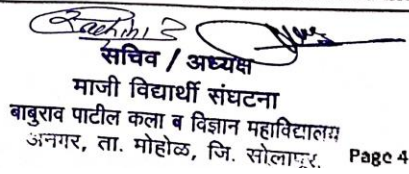 सचिव / अध्यक्ष
माजी विद्यार्थी संघटना
बाबुराव पाटील कला ब विज्ञान महाविद्यालय
अनगर, ता. मोहोळ, जि. सोलापूर. Page 4